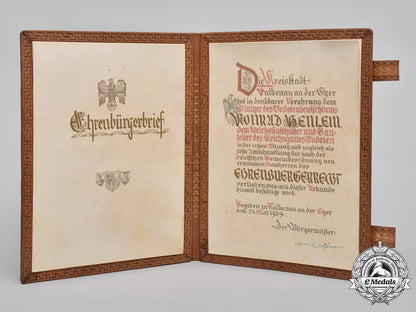 Ehrenbürgerbrief
Die Kreisstadt
Falkenau an der Eger
hat in dankbarer Verehrung dem
Führer des Sudetendeutschtums
KONRAD HENLEIN,
dem Reichsstatthalter und Gau-
leiter des Reichsgaues Sudeten
in der ersten Sitzung und zugleich als
erste Amtshandlung der nach der
deutschen Gemeindeordnung neu
ernannten Ratsherren das
EHRENBÜRGERRECHT
verliehen, was mit dieser Urkunde
hiemit bestätigt wird.
Gegeben zu Falkenau an der Eger
am 23. Mai 1939.
Der Bürgermeister:
eMedals